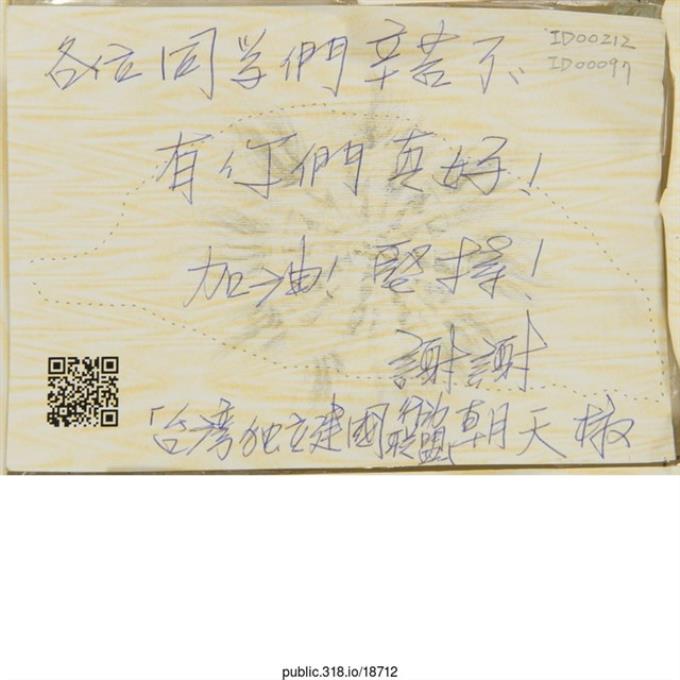 各位同学們辛苦了
ID00212
ID00097
有你們真好！
加油！堅持！
謝謝
「台湾独立建國行動聯盟」朝天椒
public.318.io/18712